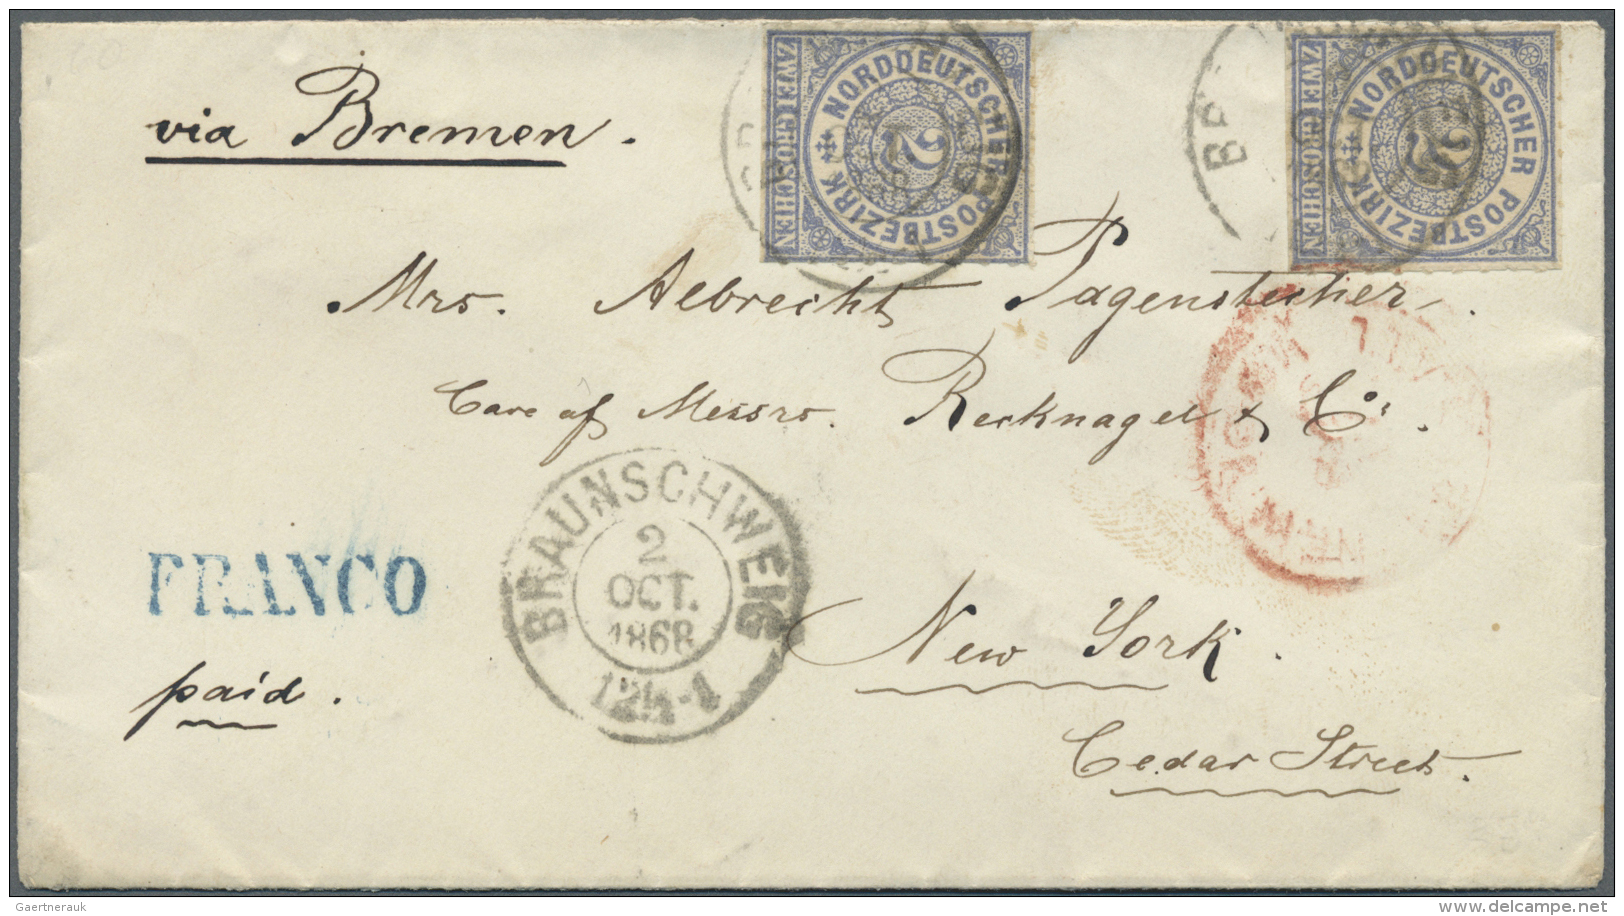 via Bremen.
NORDDEUTSCHER POSTBEZIRK
ZWEI GROSCHEN
2
NORDDEUTSCHER POSTBEZIRK
ZWEI GROSCHEN
2
Mrs. Albrecht Pagenstecher.
Care of Messrs. Recknagel & Co.
BRAUNSCHWEIG
2
OCT.
1868
12½-1
FRANCO
paid.
New York.
Cedar Street.
Gaertnerauk
www.delcampe.net